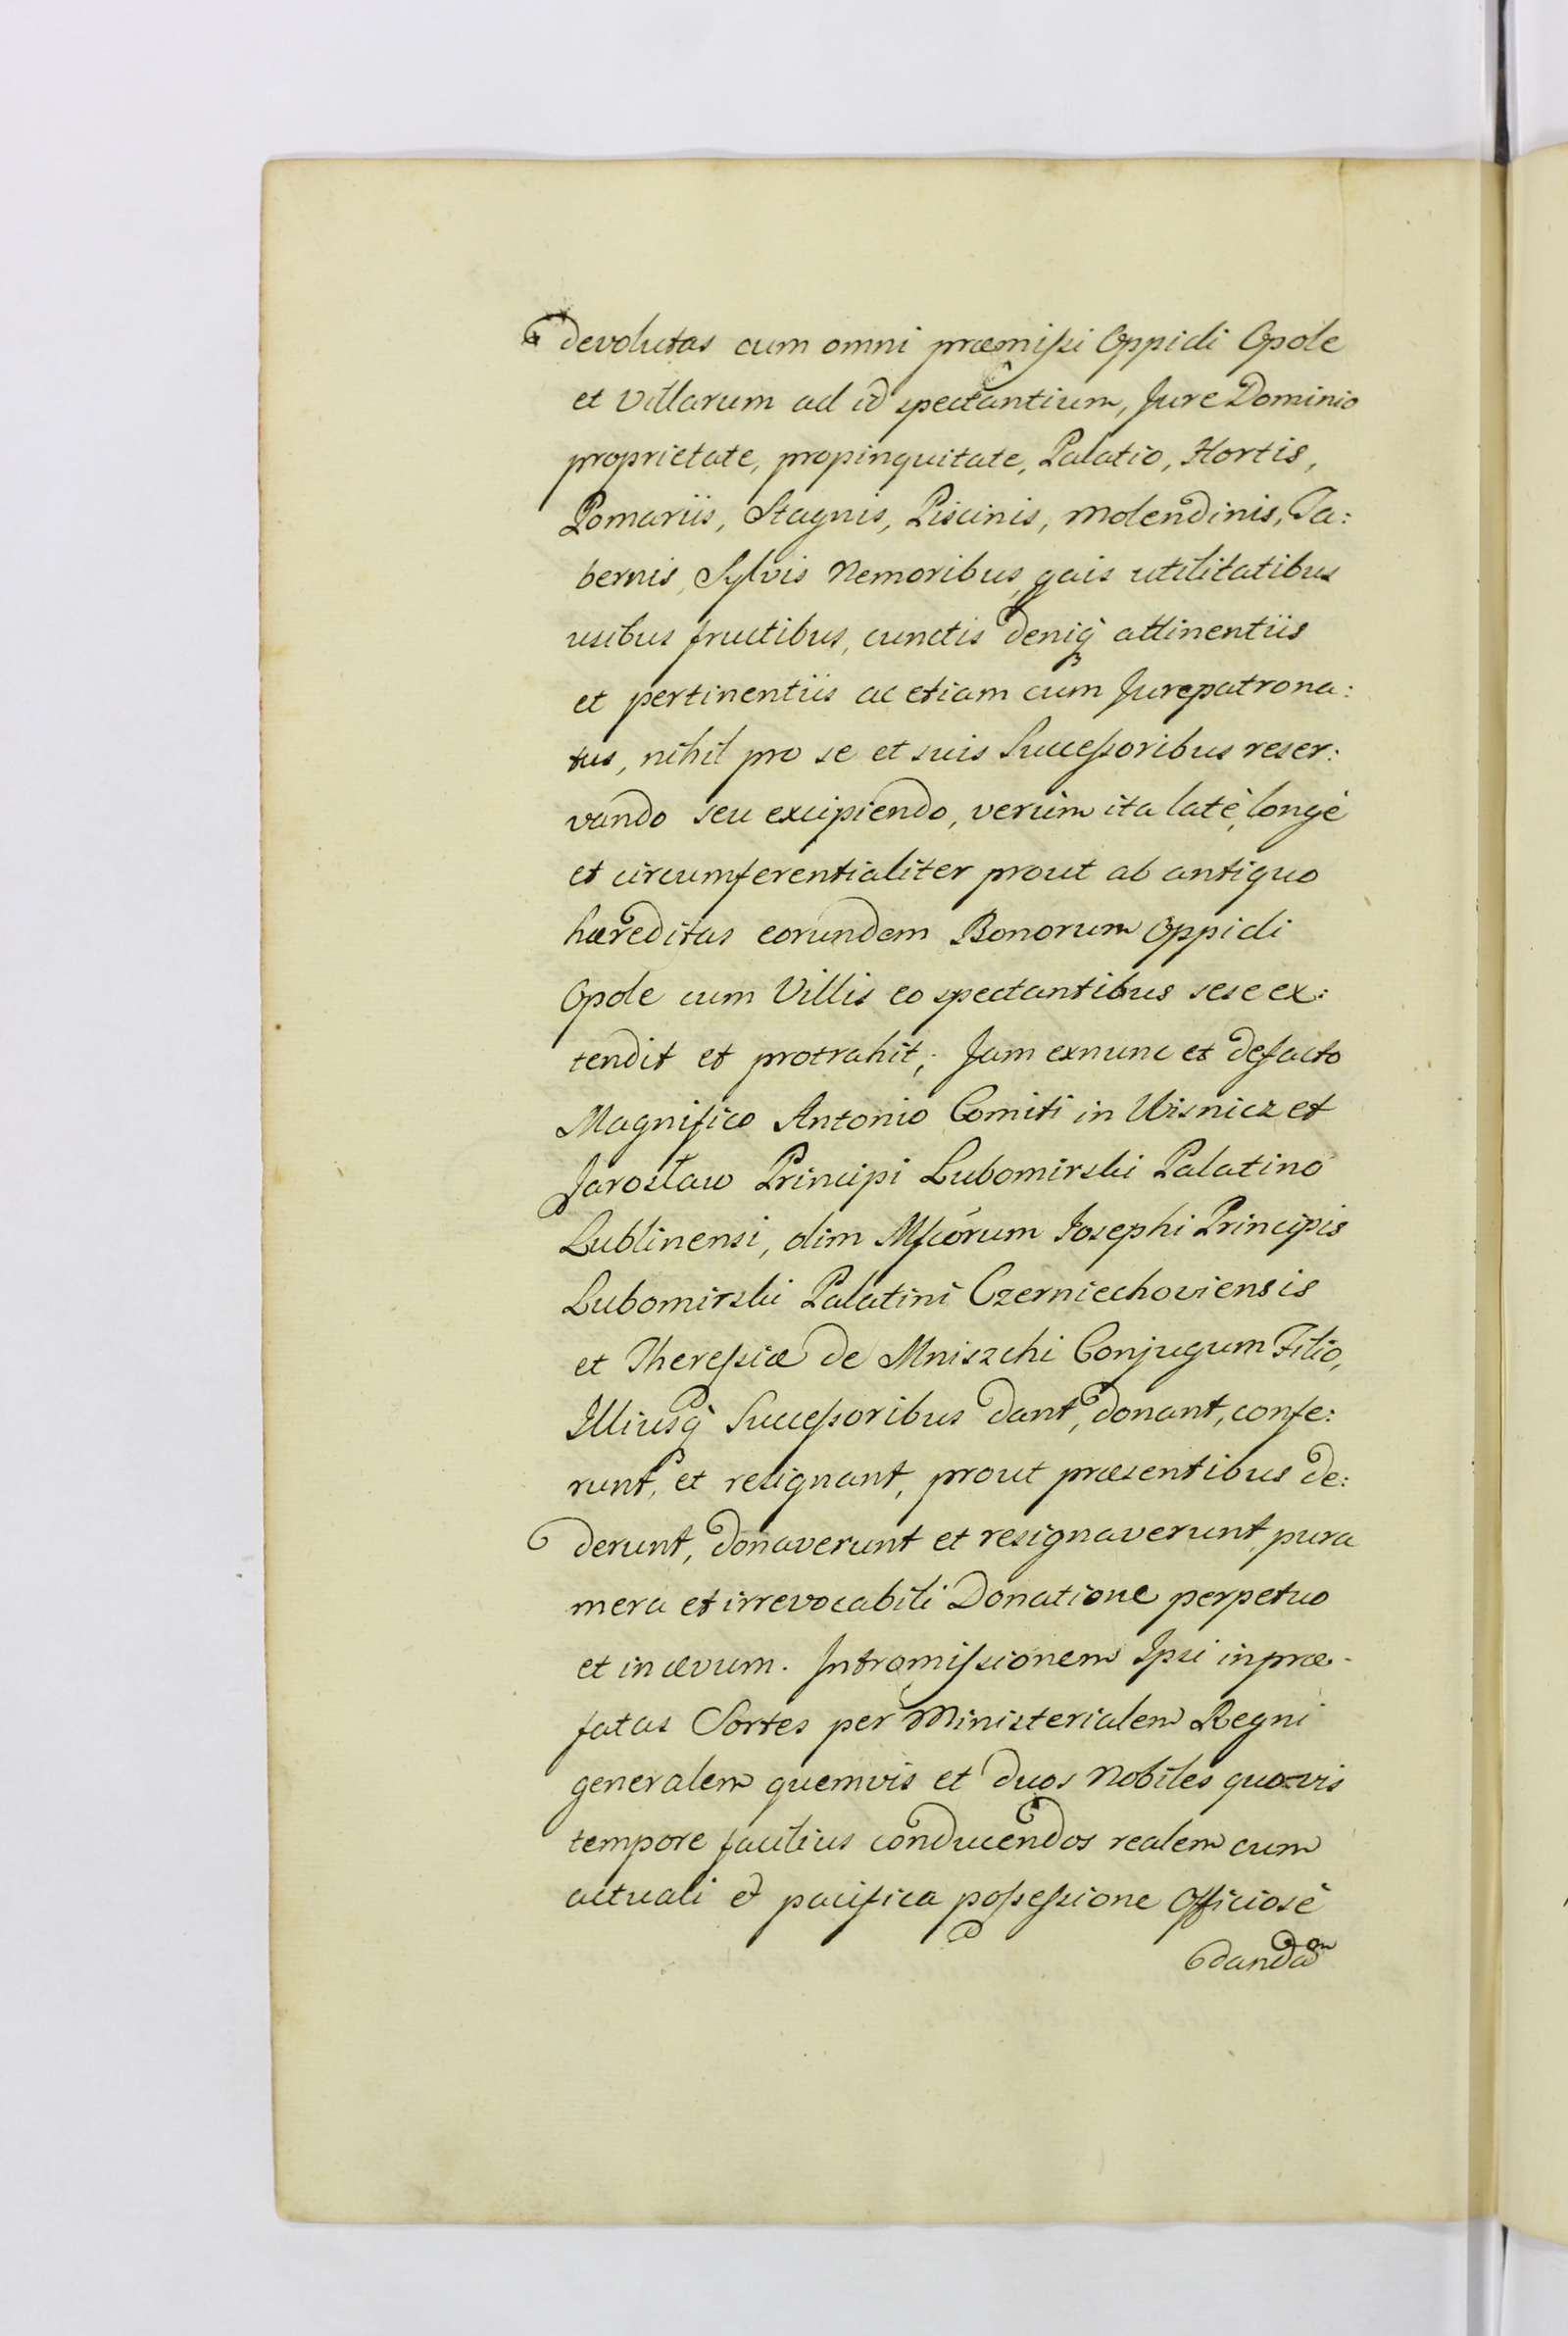 devolutas cum omni præmissi Oppidi Opole
et Villarum ad id spectantium, Jure Dominio
proprietate, propinquitate, Palatio, Hortis,
Pomariis, Stagnis, Piscinis, Molendinis, Ta:
bernis, Sylvis Nemoribus, gais utilitatibus
usibus fructibus, cunctis deniq̃ attinentiis
et pertinentiis ac etiam cum Jurepatrona:
tus, nihil pro se et suis Successoribus reser:
vando seu excipiendo, verùm ita latè, longè
et circumferentialiter prout ab antiquo
hæreditas eorundem Bonorum Oppidi
Opole cum Villis eo spectantibus sese ex:
tendit et protrahit; Jam exnunc et defacto
Magnifico Antonio Comiti in Wisnicz et
Jarosław Principi Lubomirski Palatino
Lublinensi, olim Mfcórum Josephi Principis
Lubomirski Palatini Czerniechoviensis
et Theressiæ de Mniszchi Conjugum Filio,
Illiusq̃ Successoribus dant, donant, confe:
runt, et resignant, prout præsentibus de:
derunt, donaverunt et resignaverunt pura
mera et irrevocabili Donatione perpetuo
et in ævum. Intromissionem Ipsi in præ-
fatas Sortes per Ministerialem Regni
generalem quemvis et duos Nobiles quovis
tempore facilius conducendos realem cum
actuali et pacifica possessione Officiosè
dandam